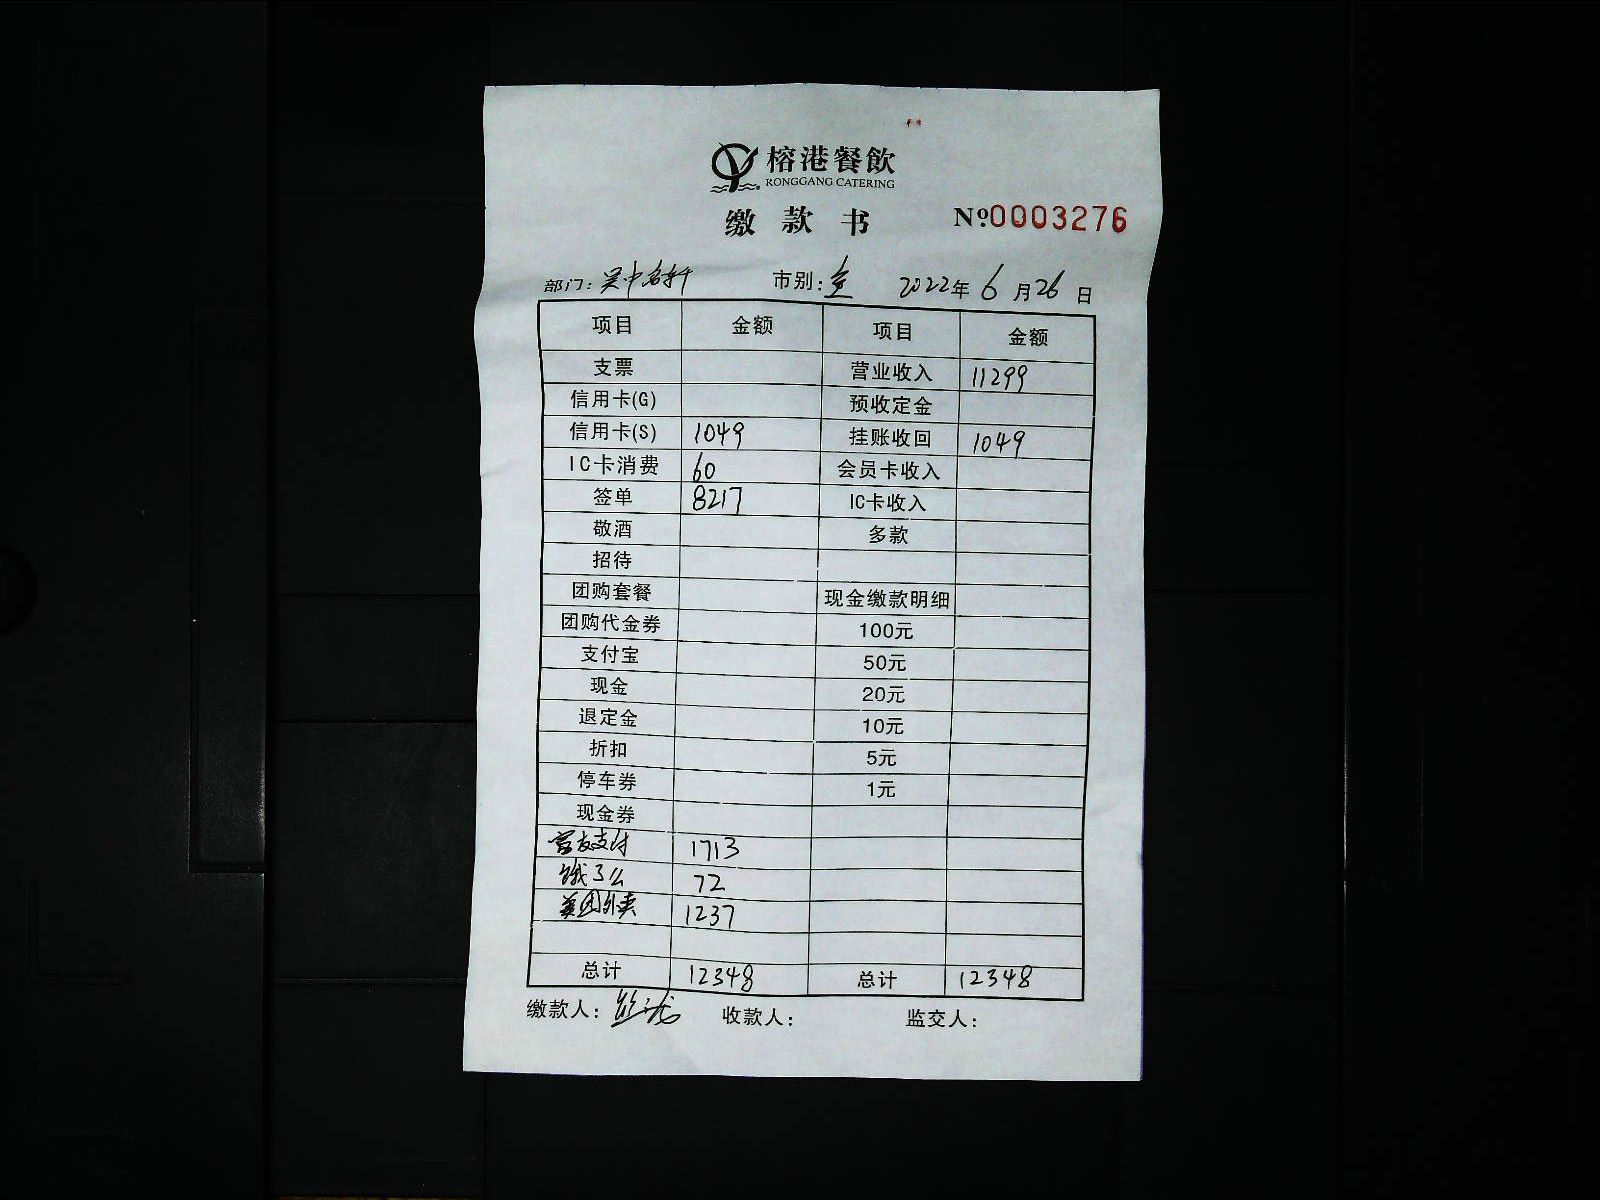 榕港餐飲
RONGGANG CATERING
缴款书 Nº0003276
部门: 吴中名轩 市别: 2022年6月26日
项目 金额 项目 金额
支票 营业收入 11299
信用卡(G) 预收定金
信用卡(S) 1049 挂账收回 1049
IC卡消费 60 会员卡收入
签单 8217 IC卡收入
敬酒 多款
招待
团购套餐 现金缴款明细
团购代金券 100元
支付宝 50元
现金 20元
退定金 10元
折扣 5元
停车券 1元
现金券
支付 1713
饿了么 72
美团外卖 1237
总计 12348 总计 12348
缴款人: 收款人: 监交人: